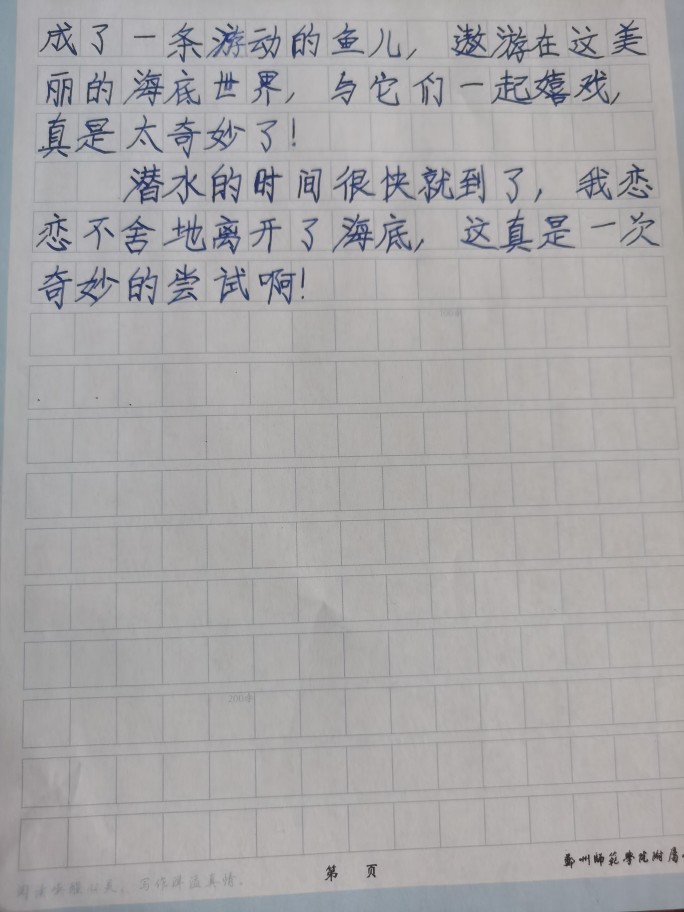 成了一条游动的鱼儿，遨游在这美
丽的海底世界，与它们一起嬉戏，
真是太奇妙了！
潜水的时间很快就到了，我恋
恋不舍地离开了海底，这真是一次
奇妙的尝试啊！
第 页
郑州师范学院附属